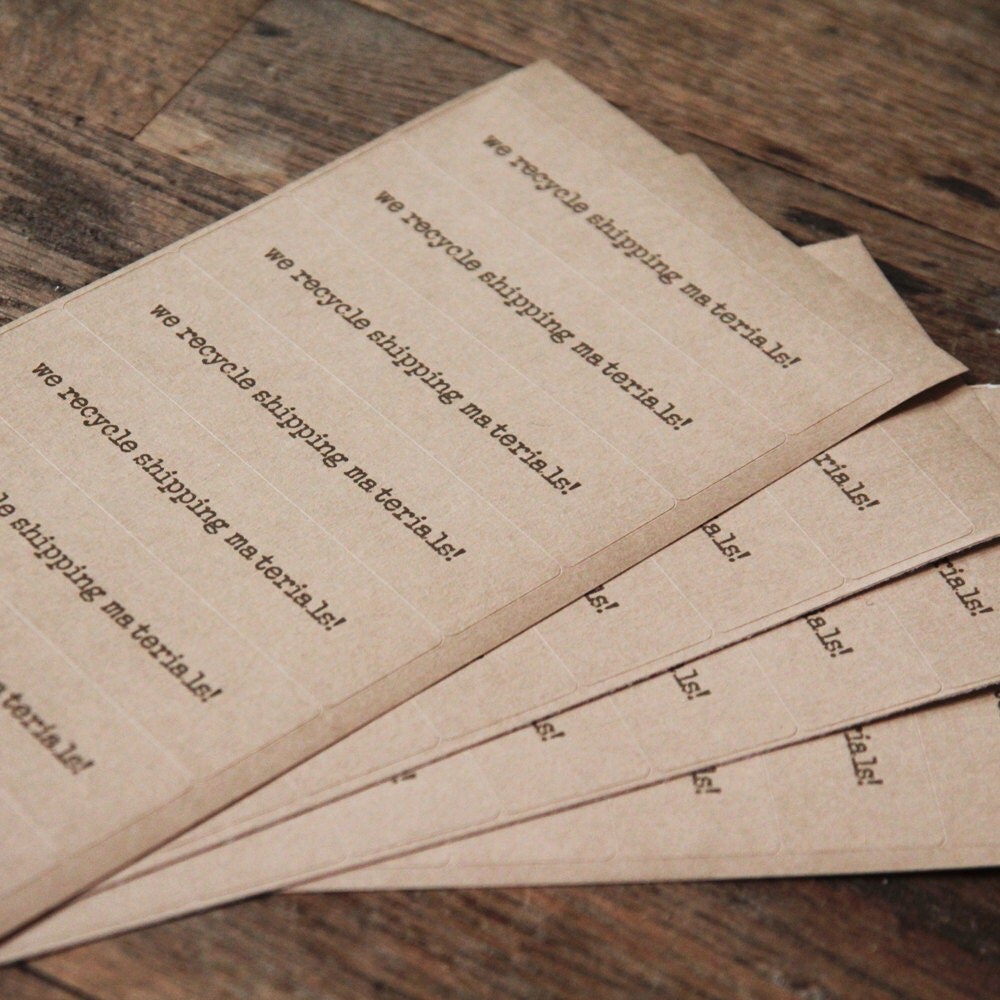 we recycle shipping materials!
we recycle shipping materials!
we recycle shipping materials!
we recycle shipping materials!
we recycle shipping materials!
le shipping materials!
terials!
rials!
als!
ls!
ials!
als!
ls!
s!
ials!
ls!